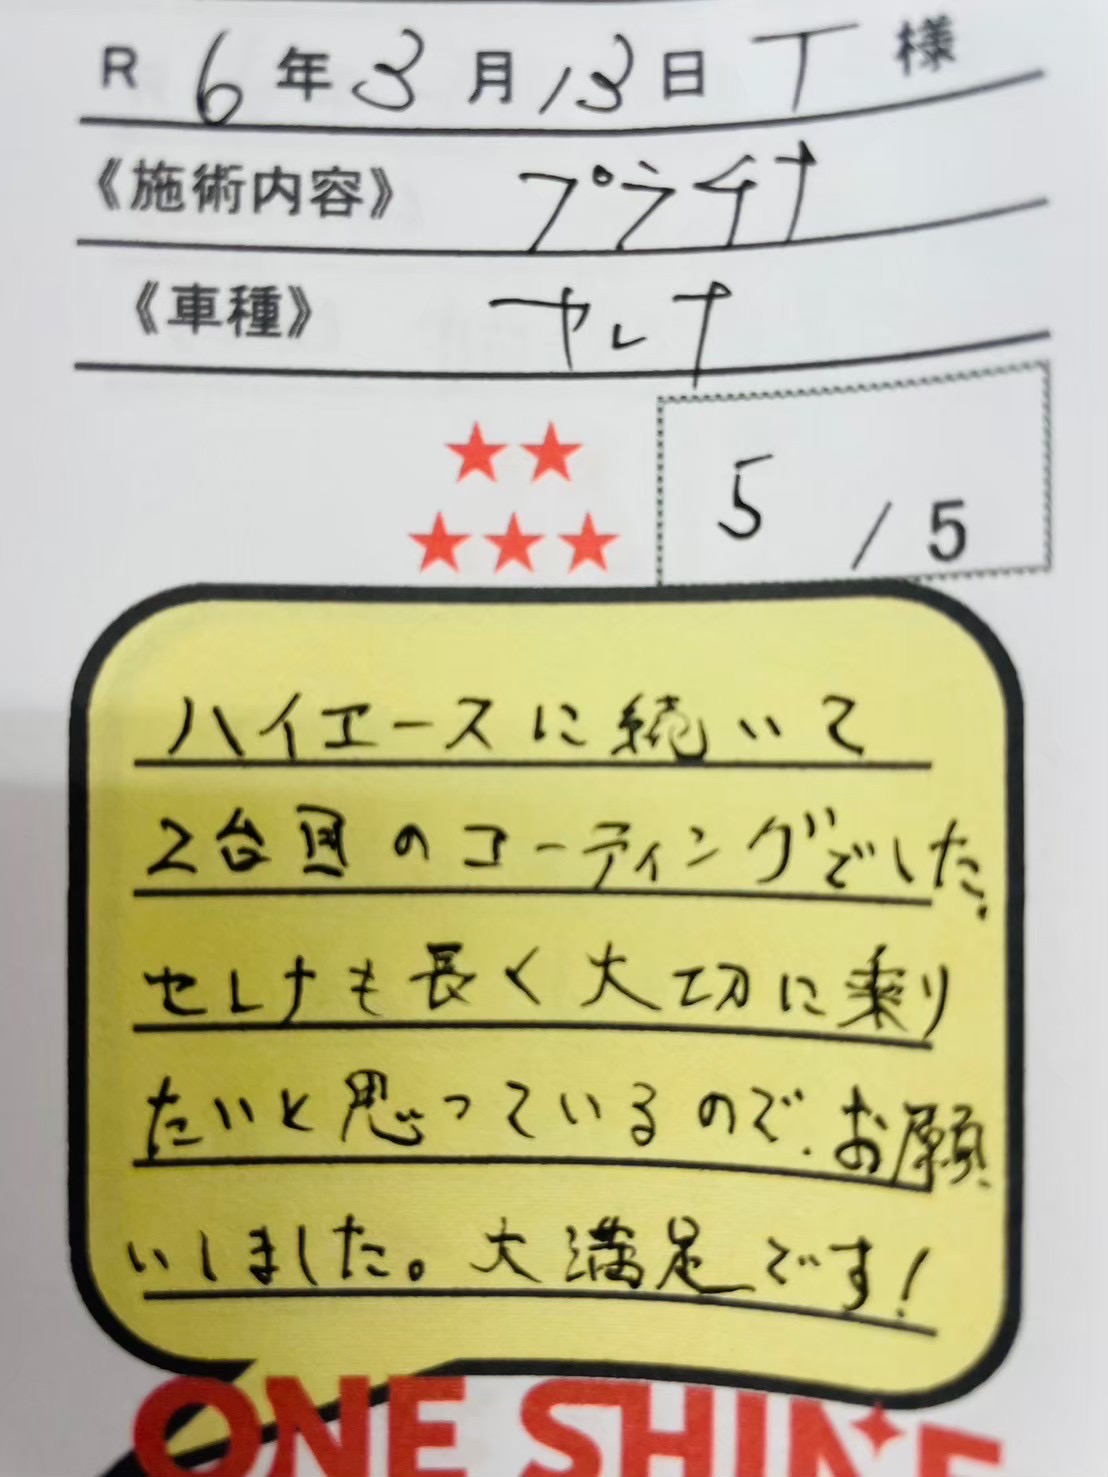 R 6年3月13日 T 様
《施術内容》 プラチナ
《車種》 セレナ
5 / 5
ハイエースに続いて
2台目のコーティングでした。
セレナも長く大切に乗り
たいと思っているので、お願
いしました。大満足です!
ONE SHINE